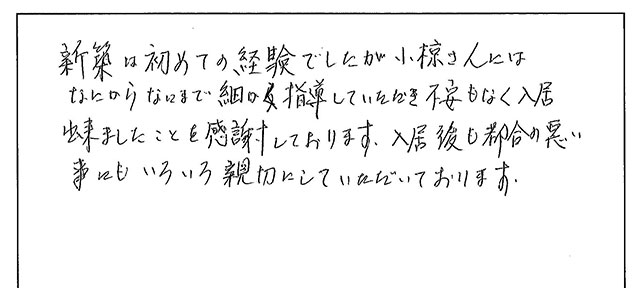 新築は初めての経験でしたが小椋さんには
なにからなにまで細かく指導していただき不安もなく入居
出来ましたことを感謝しております。入居後も都合の悪い
事にもいろいろ親切にしていただいております。